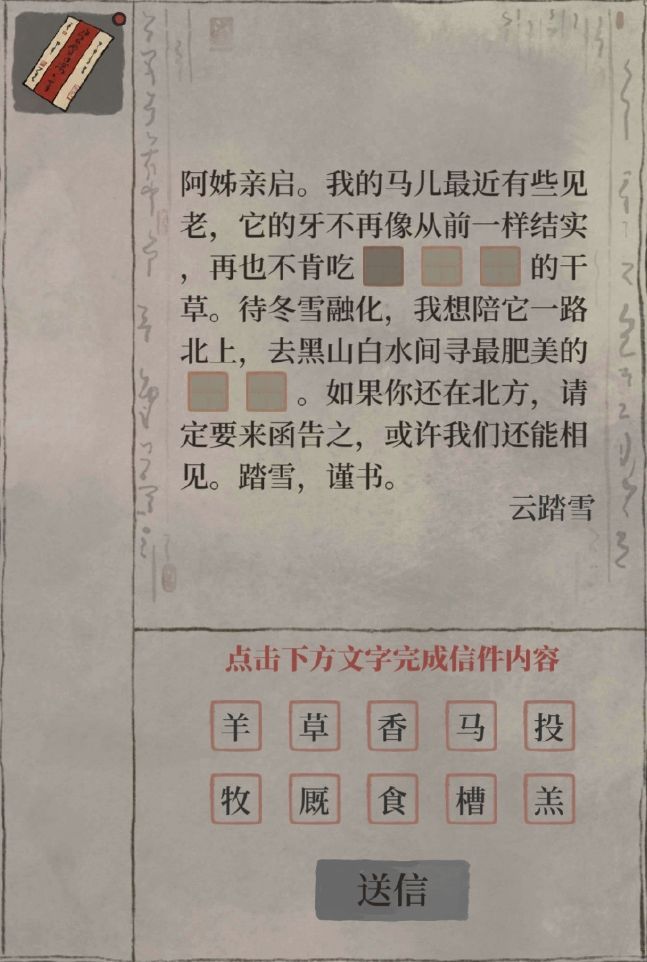 阿姊亲启。我的马儿最近有些见
老，它的牙不再像从前一样结实
，再也不肯吃 的干
草。待冬雪融化，我想陪它一路
北上，去黑山白水间寻最肥美的
。如果你还在北方，请
定要来函告之，或许我们还能相
见。踏雪，谨书。
云踏雪
点击下方文字完成信件内容
羊 草 香 马 投
牧 厩 食 槽 羔
送信